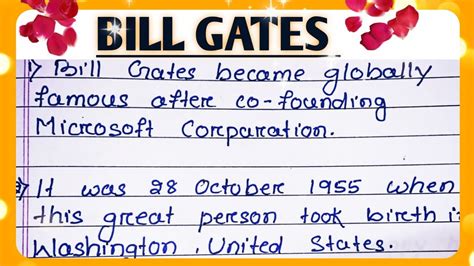 BILL GATES
1) Bill Gates became globally
famous after co-founding
Microsoft Corparation.
2) It was 28 October 1955 when
this great person took birth i
Washington, United States.